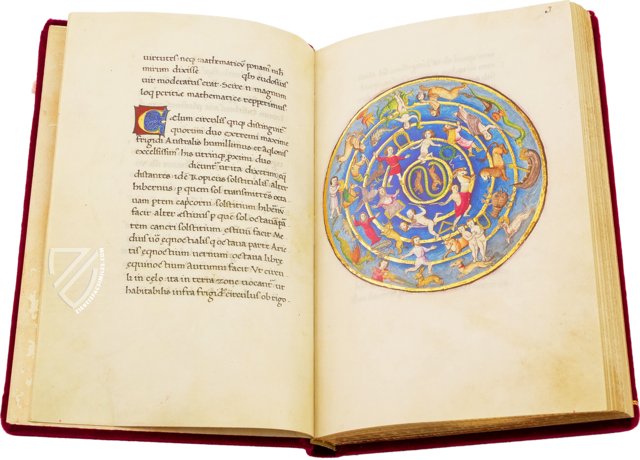 uirtutes neq; mathematicū ponam nihil
mirum dixisse q̄ħs eudosius
uir moderatus erat. Scire n̄ magnum
loq̄ peritie mathematice repperimus
Cælum circulis quq; distinguit͛
quorum duo extremi maxime
frigidi Australis humillimus et aqlonis
excelsissim͛ his utrinq; ꝓximi duo
dicunt͛ ut ita dicam
distantes. idē Tropicus solstitialis alter
hibernus. p quem sol transmittēs octa
uam ptem capcorni solstitium hibernū
facit alter æstiuus p quē sol octauā p̄
tem cancri solstitium. æstiuū facit. Me
dius uō eqnoctialis q octaua parte Arie
tis eqnoctium uernum octaua librę
equinoctium autumni facit. Ut circu
li in celo ita in terra zone uocant͛ ut
habitabilis infra frigidi circulus ob rigo
3